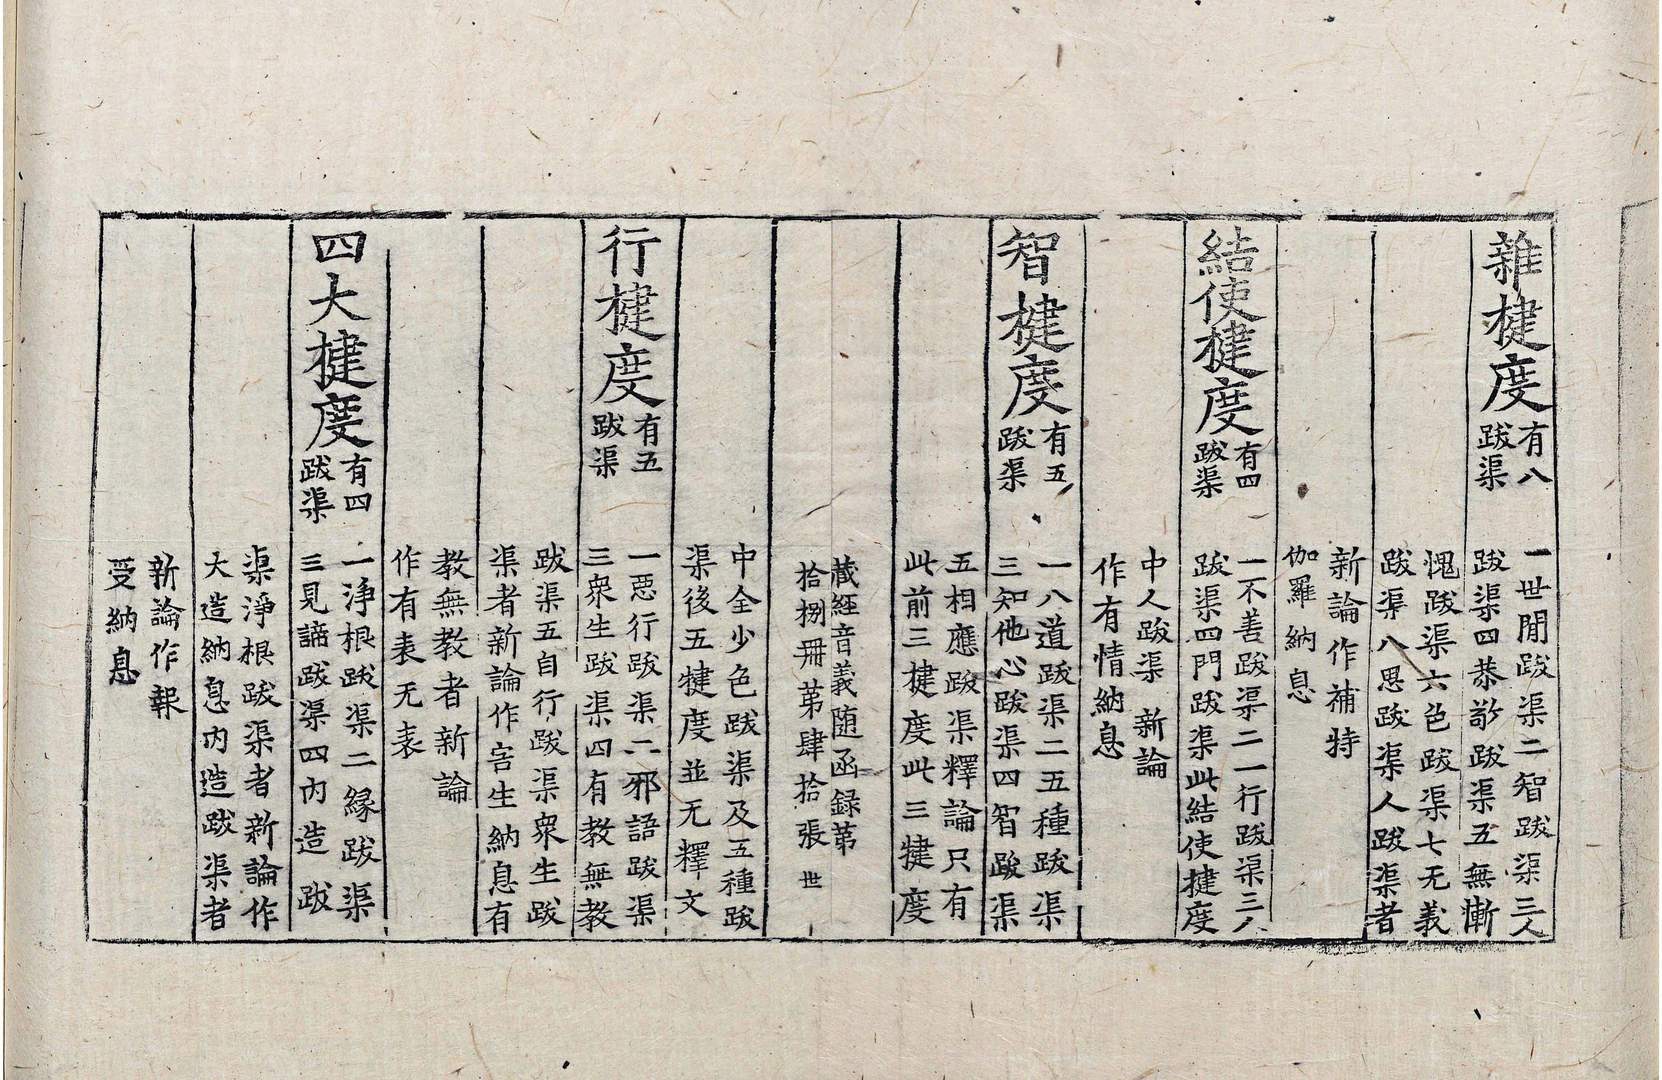 雜揵度
有八
跋渠
一世閒跋渠二智跋渠三人
跋渠四恭敬跋渠五無慚
愧跋渠六色跋渠七无義
跋渠八思跋渠人跋渠者
新論作補特
伽羅納息
結使揵度
有四
跋渠
一不善跋渠二一行跋渠三人
跋渠四門跋渠此結使揵度
中人跋渠新論
作有情納息
智揵度
有五
跋渠
一八道跋渠二五種跋渠
三知他心跋渠四智跋渠
五相應跋渠釋論只有
此前三揵度此三揵度
藏經音義随函録第
拾捌冊第肆拾張 世
中全少色跋渠及五種跋
渠後五揵度並无釋文
行揵度
有五
跋渠
一惡行跋渠二邪語跋渠
三衆生跋渠四有教無教
跋渠五自行跋渠衆生跋
渠者新論作害生納息有
教無教者新論
作有表无表
四大揵度
有四
跋渠
一淨根跋渠二緣跋渠
三見諦跋渠四內造跋
渠淨根跋渠者新論作
大造納息內造跋渠者
新論作報
受納息